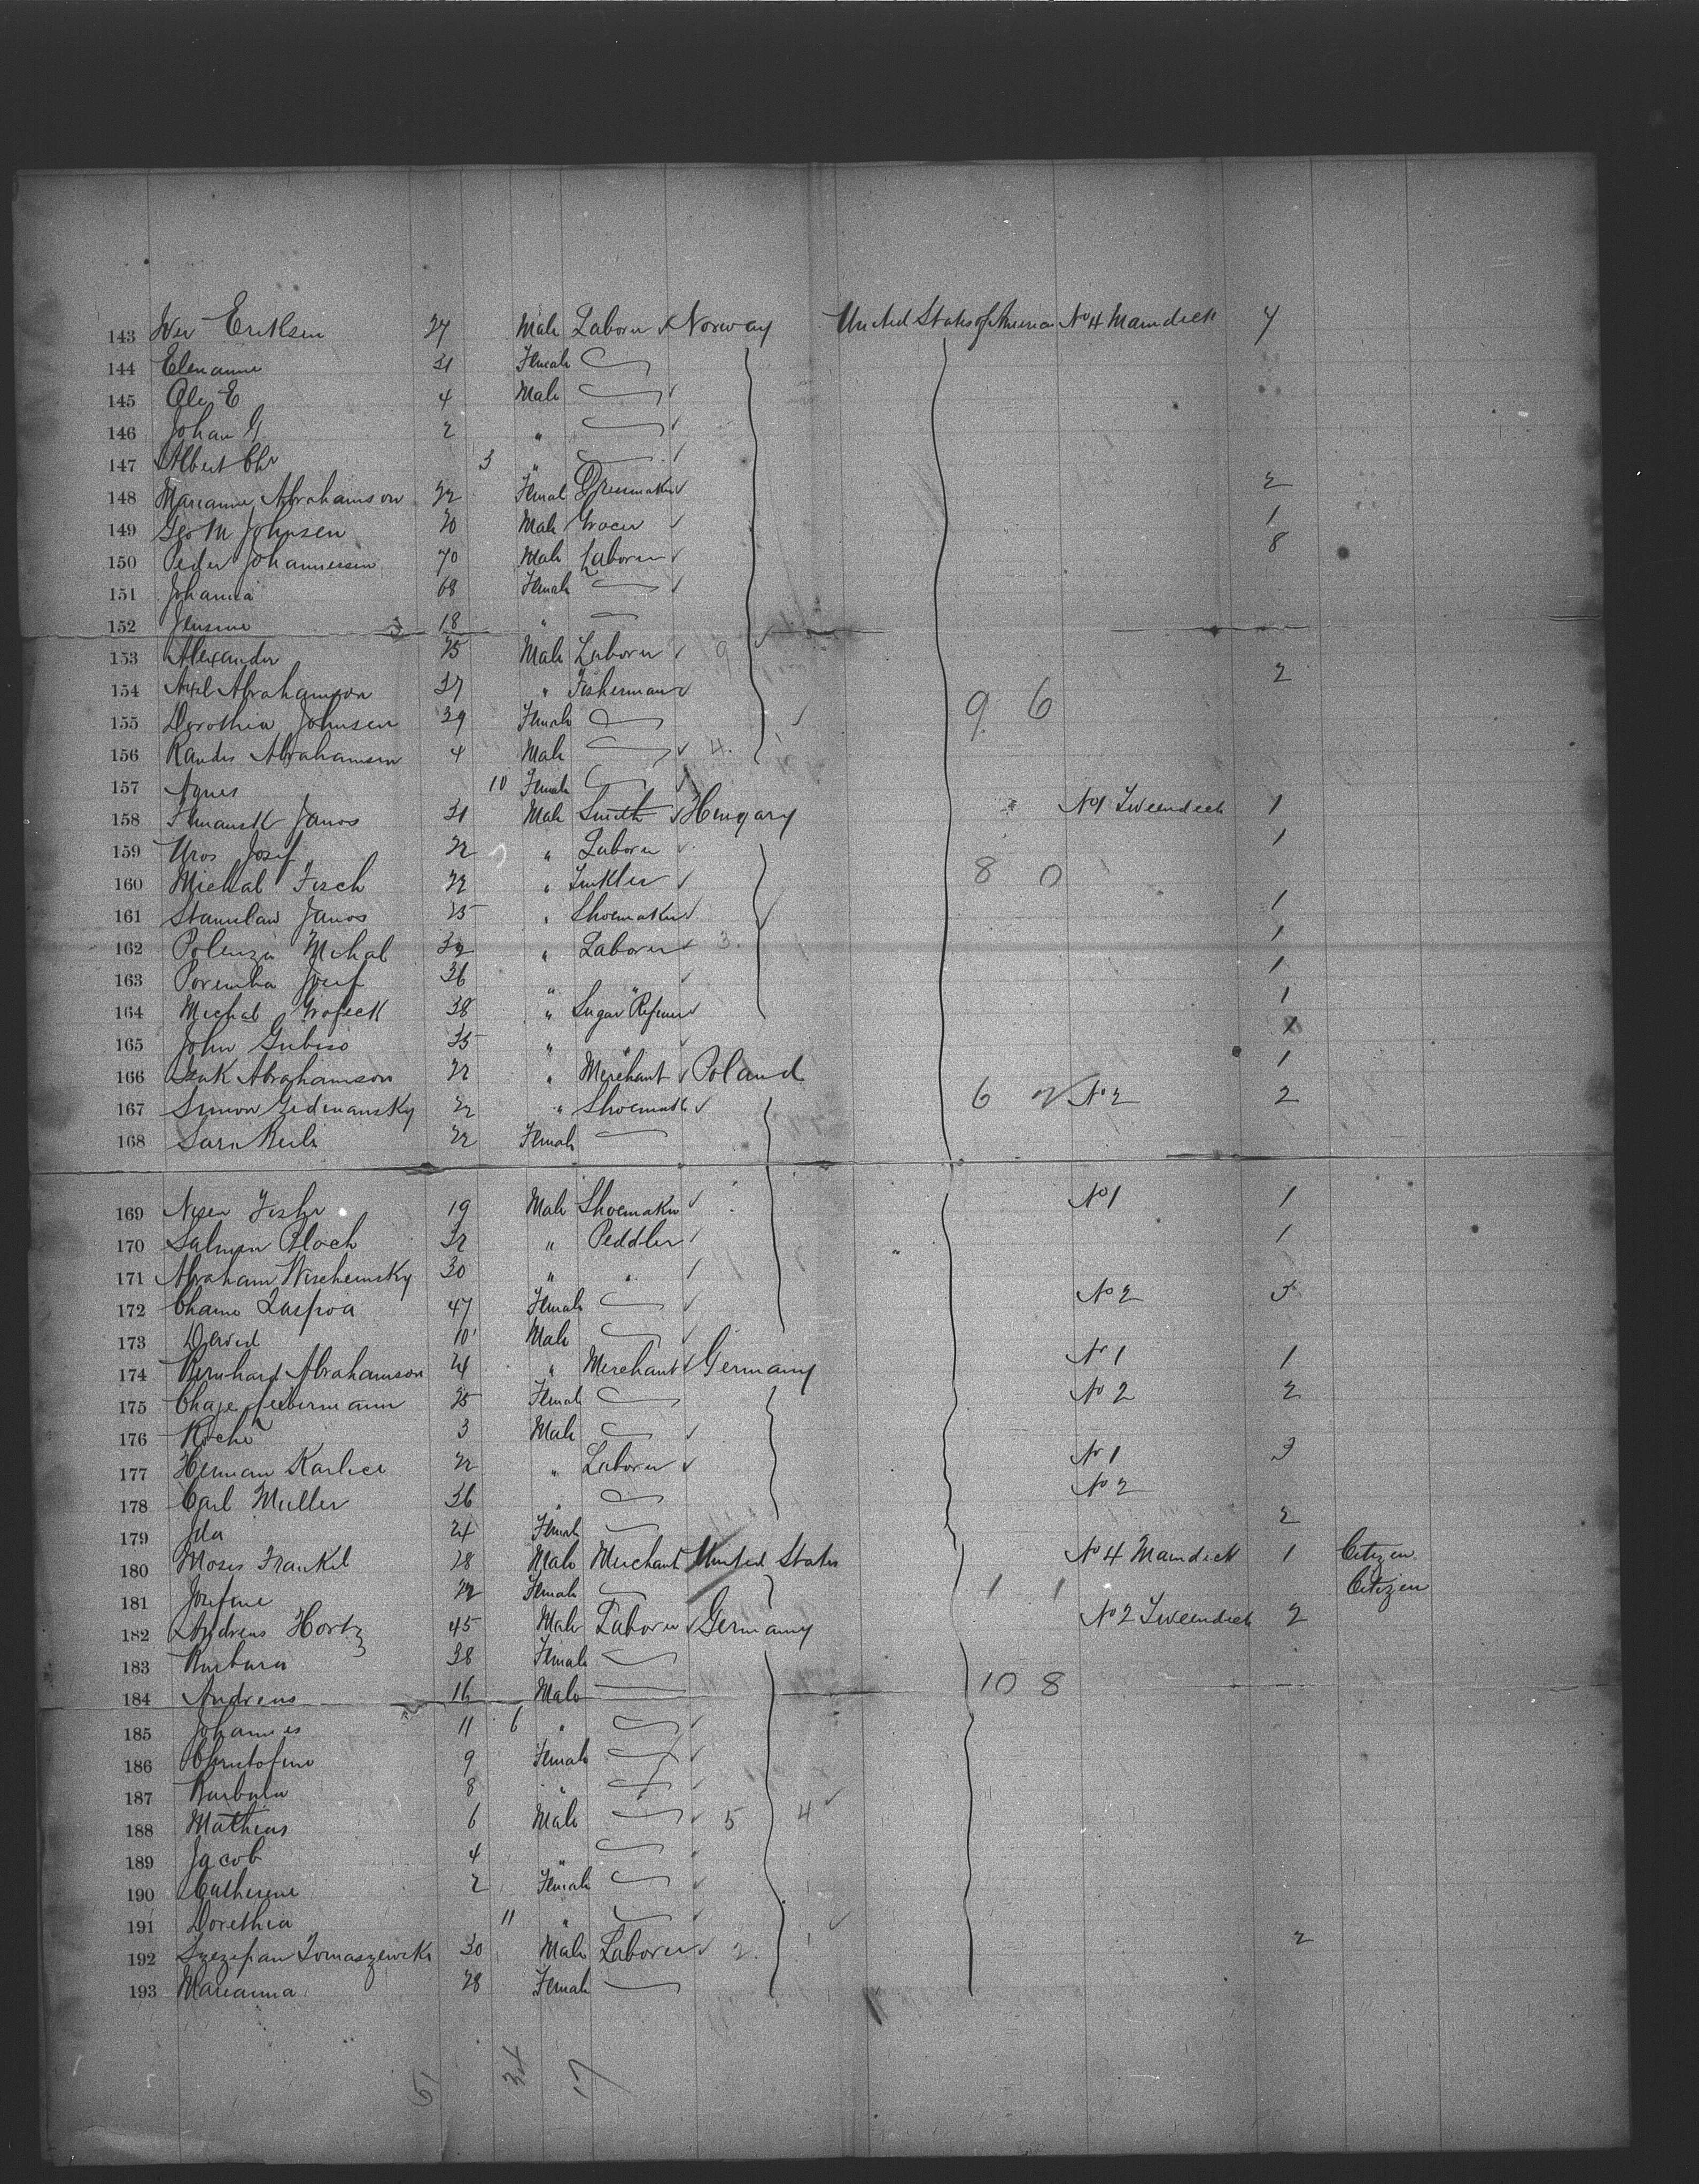 143 Iver Eriksen 27 Male Laborer Norway United States of America No 4 Maindeck 7
144 Elenanne 31 Female
145 Ole E 4 Male
146 Johan G 2 "
147 Albert Chr 3 "
148 Marianne Abrahamson 22 Femal Dressmaker 2
149 Geo M Johnsen 20 Male Grocer 1
150 Peder Johannessen 70 Male Laborer 8
151 Johanna 68 Female
152 Jensine 3 18 "
153 Alexander 25 Male Laborer 9
154 Axel Abrahamson 37 " Fisherman 2
155 Dorothia Johnsen 39 Female 9 6
156 Randis Abrahamsen 4 Male 4.
157 Agnes 10 Female
158 Janos 31 Male Smith Hungary No 1 Tweendeck 1
159 Uros Josif 22 " Laborer 1
160 Michal Fisch 22 " 8 0
161 Stanislaw Janos 25 " Shoemaker 1
162 Michal 32 " Laborer 3. 1
163 Poremba Josef 36 " " 1
164 Michal 38 " Sugar Refiner 1
165 John 35 " " 1
166 Isak Abraghamson 22 " Merchant Poland 1
167 Simon 22 " Shoemak 6 2 No 2 2
168 Sara 22 Female
169 Fisher 19 Male Shoemaker No 1 1
170 Salmon Bloch 32 " Peddler 1
171 Abraham 30 " "
172 47 Female No 2 3
173 David 10 Male
174 Bernhard Abrahamson 24 " Merchant Germany No 1 1
175 Chaje Liebermann 25 Female No 2 2
176 3 Male
177 Herman 22 " Laborer No 1 3
178 Carl Muller 36 " No 2
179 Ida 24 Female 2
180 Moses Frankel 28 Male Merchant United States No 4 Maindeck 1 Citizen
181 Josefine 22 Female 1 1 Citizen
182 Andreas Hortz 45 Male Laborer Germany No 2 Tweendeck 2
183 Barbara 38 Female
184 Andreas 16 Male 10 8
185 Johannes 11 6 "
186 9 Female
187 8 "
188 Mathias 6 Male 5 4
189 Jacob 4 "
190 Catherine 2 Female
191 Dorethia 11 "
192 Szczepan Tomaszewski 30 Male Laborer 2. 1 2
193 Marianna 28 Female
51 34 17